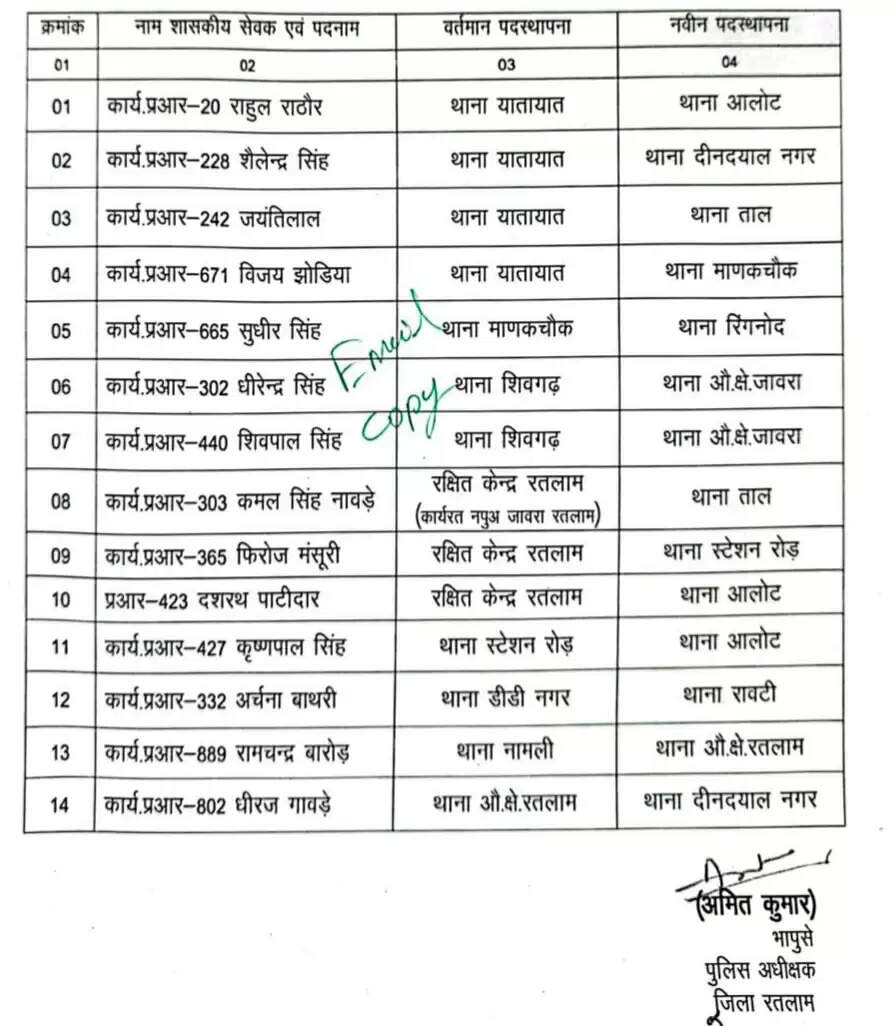 क्रमांक नाम शासकीय सेवक एवं पदनाम वर्तमान पदस्थापना नवीन पदस्थापना
01 02 03 04
01 कार्य.प्रआर–20 राहुल राठौर थाना यातायात थाना आलोट
02 कार्य.प्रआर–228 शैलेन्द्र सिंह थाना यातायात थाना दीनदयाल नगर
03 कार्य.प्रआर–242 जयंतिलाल थाना यातायात थाना ताल
04 कार्य.प्रआर–671 विजय झोडिया थाना यातायात थाना माणकचौक
05 कार्य.प्रआर–665 सुधीर सिंह थाना माणकचौक थाना रिंगनोद
Email
06 कार्य.प्रआर–302 धीरेन्द्र सिंह थाना शिवगढ़ थाना औ.क्षे.जावरा
copy
07 कार्य.प्रआर–440 शिवपाल सिंह थाना शिवगढ़ थाना औ.क्षे.जावरा
08 कार्य.प्रआर–303 कमल सिंह नावड़े रक्षित केन्द्र रतलाम थाना ताल
(कार्यरत नपुअ जावरा रतलाम)
09 कार्य.प्रआर–365 फिरोज मंसूरी रक्षित केन्द्र रतलाम थाना स्टेशन रोड़
10 प्रआर–423 दशरथ पाटीदार रक्षित केन्द्र रतलाम थाना आलोट
11 कार्य.प्रआर–427 कृष्णपाल सिंह थाना स्टेशन रोड़ थाना आलोट
12 कार्य.प्रआर–332 अर्चना बाथरी थाना डीडी नगर थाना रावटी
13 कार्य.प्रआर–889 रामचन्द्र बारोड़ थाना नामली थाना औ.क्षे.रतलाम
14 कार्य.प्रआर–802 धीरज गावड़े थाना औ.क्षे.रतलाम थाना दीनदयाल नगर
(अमित कुमार)
भापुसे
पुलिस अधीक्षक
जिला रतलाम